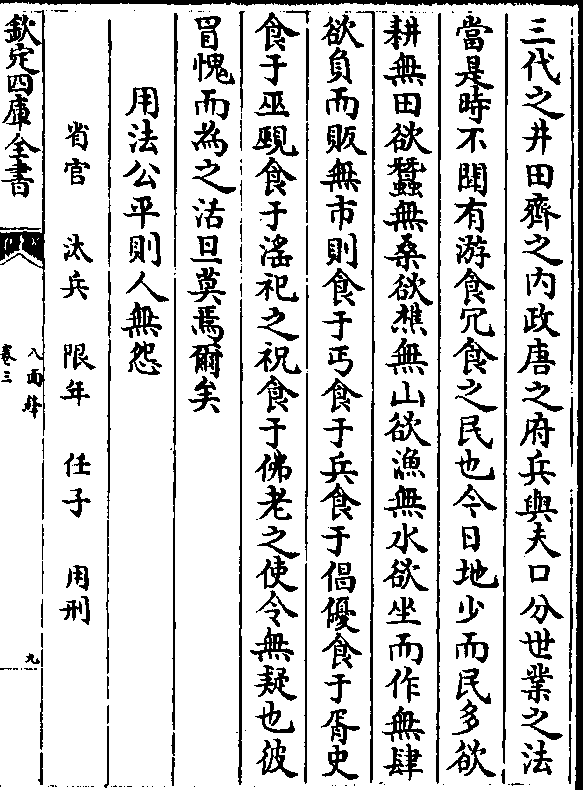 三代之井田齊之内政唐之府兵與夫口分世業之法
當是時不聞有游食冗食之民也今日地少而民多欲
耕無田欲蠶無桑欲樵無山欲漁無水欲坐而作無肆
欲負而販無市則食于丐食于兵食于倡優食于胥史
食于巫覡食于滛祀之祝食于佛老之使令無疑也彼
冒愧而為之沽旦莫焉爾矣
用法公平則人無怨
省官 汰兵 限年 任子 用刑
欽定四庫全書
八面鋒
卷三
九